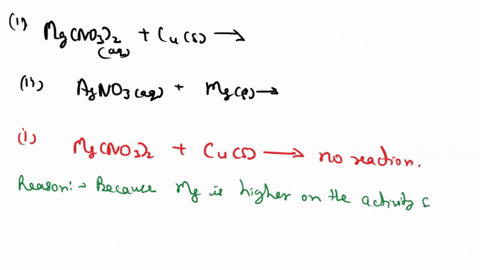 (i) Mg(NO3)2 (aq) + Cu(s) →
(ii) AgNO3(aq) + Mg(s) →
(i) Mg(NO3)2 + Cu(s) → no reaction.
Reason:→ Because Mg is higher on the activity